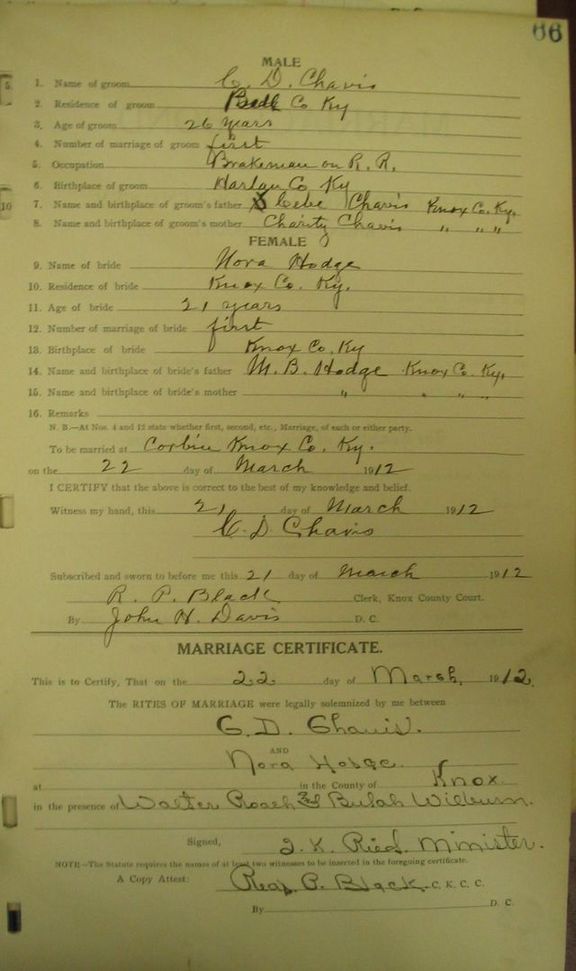 66
MALE
1. Name of groom C. D. Chavis
2. Residence of groom Bell Co Ky
3. Age of groom 26 years
4. Number of marriage of groom first
5. Occupation Brakeman on R. R.
6. Birthplace of groom Harlan Co. Ky
7. Name and birthplace of groom's father Cebe Chavis Knox Co. Ky.
8. Name and birthplace of groom's mother Charity Chavis " " "
FEMALE
9. Name of bride Nora Hodge
10. Residence of bride Knox Co. Ky.
11. Age of bride 21 years
12. Number of marriage of bride first
13. Birthplace of bride Knox Co. Ky
14. Name and birthplace of bride's father M. B. Hodge Knox Co. Ky.
15. Name and birthplace of bride's mother " " " "
16. Remarks
N. B.—At Nos. 4 and 12 state whether first, second, etc., Marriage, of each or either party.
To be married at Corbin Knox Co. Ky.
on the 22 day of March 1912
I CERTIFY that the above is correct to the best of my knowledge and belief.
Witness my hand, this 21 day of March 1912
C. D. Chavis
Subscribed and sworn to before me this 21 day of March 1912
R. P. Black Clerk, Knox County Court.
By John H. Davis D. C.
MARRIAGE CERTIFICATE.
This is to Certify, That on the 22 day of March, 1912.
The RITES OF MARRIAGE were legally solemnized by me between
C. D. Chavis.
AND
Nora Hodge.
at in the County of Knox
in the presence of Walter Roach and Bulah Wilburn.
Signed, Minister.
NOTE—The Statute requires the names of at least two witnesses to be inserted in the foregoing certificate.
A Copy Attest: Read P. Black C. K. C. C.
By D. C.